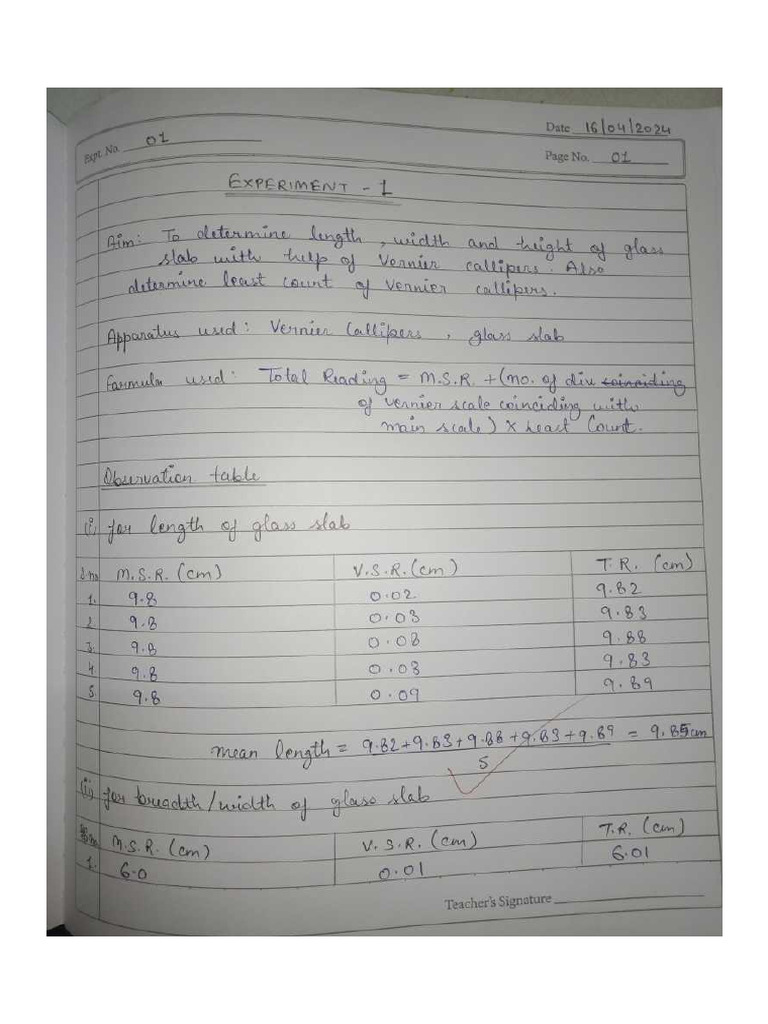 Date 16/04/2024
Expt. No. 01
Page No. 01
EXPERIMENT - 1
Aim: To determine length, width and height of glass
slab with help of Vernier callipers. Also
determine least count of vernier callipers.
Apparatus used: Vernier Callipers, glass slab
Formula used: Total Reading = M.S.R. + (no. of div coinciding
of vernier scale coinciding with
main scale) x Least Count.
Observation table
(i) for length of glass slab
S.no M.S.R. (cm) V.S.R. (cm) T.R. (cm)
1. 9.8 0.02 9.82
2. 9.8 0.03 9.83
3. 9.8 0.08 9.88
4. 9.8 0.03 9.83
5. 9.8 0.09 9.89
mean length = 9.82+9.83+9.88+9.83+9.89 = 9.85cm
5
(ii) for breadth/width of glass slab
M.S.R. (cm) V.S.R. (cm) T.R. (cm)
1. 6.0 0.01 6.01
Teacher's Signature